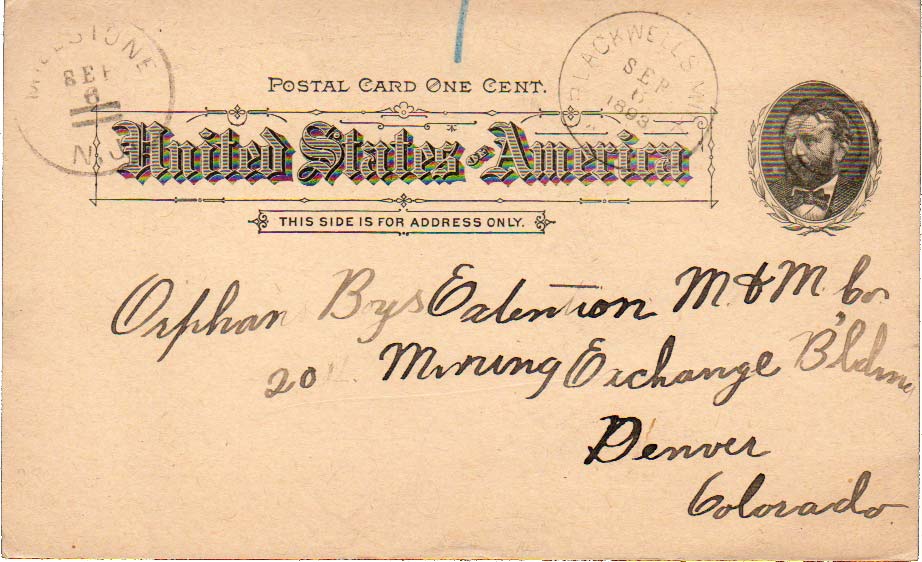 MILLSTONE
SEP
6
N.J.
BLACKWELLS MI
SEP
6
1893
POSTAL CARD ONE CENT.
United States of America
THIS SIDE IS FOR ADDRESS ONLY.
Orphan Boys Extention M & M Co
20 Mining Exchange B'ldin
Denver
Colorado